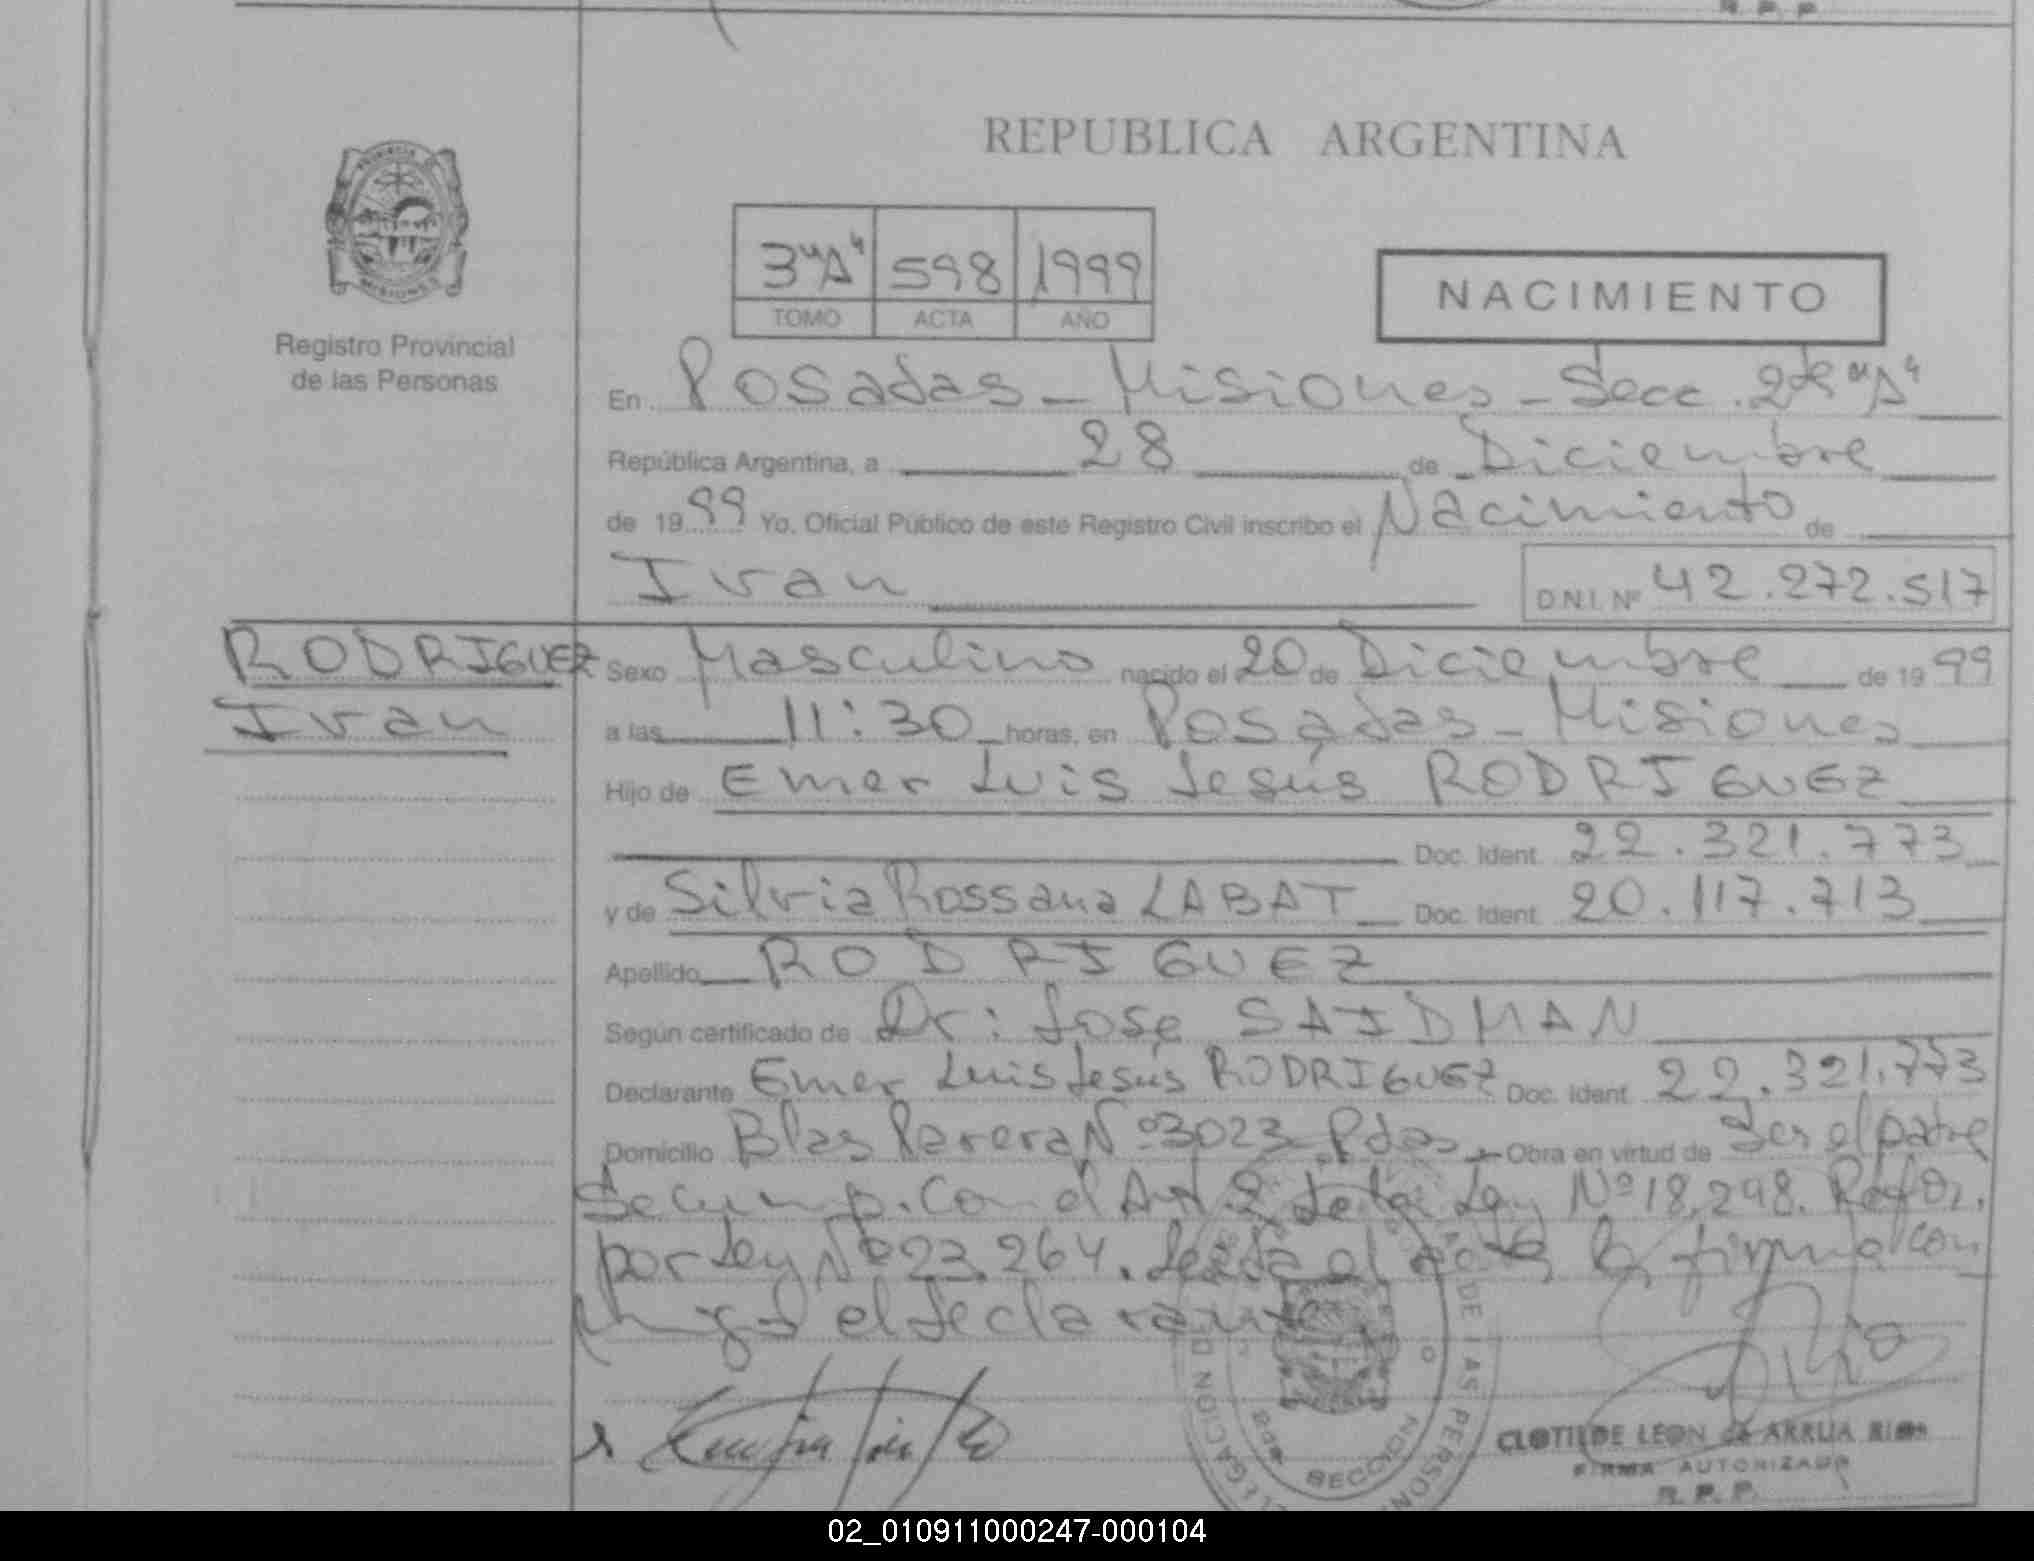 R. P. P.
REPUBLICA ARGENTINA
PROVINCIA
MISIONES
Registro Provincial
de las Personas
3"A" 598 1999
TOMO ACTA AÑO
NACIMIENTO
En Posadas - Misiones - Secc. 2da "A"
República Argentina, a 28 de Diciembre
de 1999 Yo. Oficial Público de este Registro Civil inscribo el Nacimiento de
Ivan D.N.I. Nº 42.272.517
RODRIGUEZ
Ivan
Sexo Masculino nacido el 20 de Diciembre de 1999
a las 11:30 horas, en Posadas - Misiones
Hijo de Emer Luis Jesús RODRIGUEZ
Doc. Ident. 22.321.773
y de Silvia Rossana LABAT Doc. Ident. 20.117.713
Apellido RODRIGUEZ
Según certificado de Dr: José SAIDMAN
Declarante Emer Luis Jesús RODRIGUEZ Doc. Ident. 22.321.773
Domicilio Blas Parera Nº 3023 Pdas - Obra en virtud de Ser el padre
Se cump. Con el Art. 2 de la Ley Nº 18.248. Refor.
por Ley Nº 23.264. Leída el acta la firma con
migo el declarante
DE LAS PERSONAS
DELEGACION
SECCION
CLOTILDE LEON de ARRUA RIOS
FIRMA AUTORIZADA
R. P. P.
02_010911000247-000104